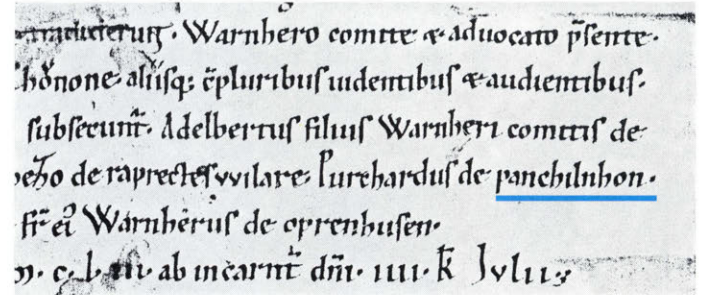 Warnhero comite & aduocato p̄sente.
aliisq; c̄pluribus uidentibus & audientibus.
subsecunt̄. Adelbertus filius Warnheri comitis de
de raprechtesvvilare. Purchardus de panchilnhon.
fr̄ ei⁹ Warnherus de oprenhusen.
ab incarnt̄ dn̄i. IIII. k̄ Julii.